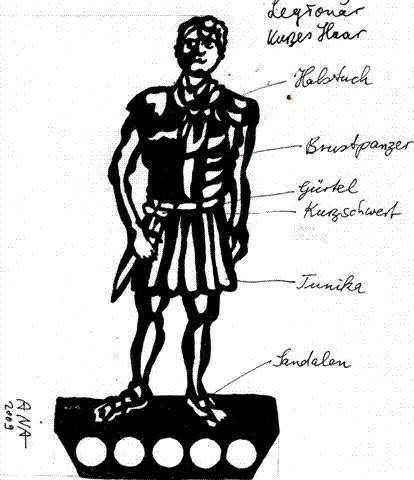 Legionär
Kurzes Haar
Halstuch
Brustpanzer
Gürtel
Kurzschwert
Tunika
Sandalen
ANA
2009